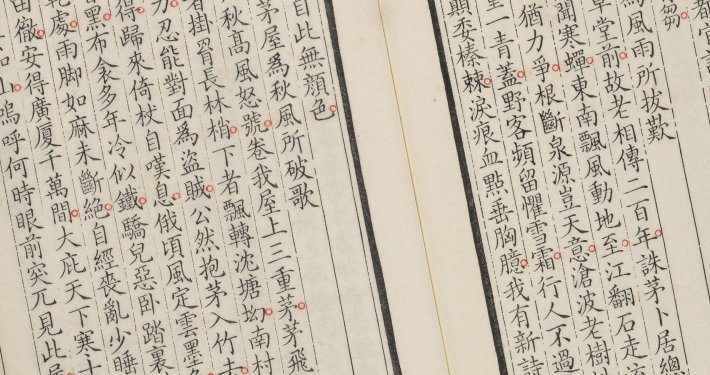 芻
為風雨所拔歎
草堂前故老相傳二百年誅茅卜居總
聞寒蟬東南飄風動地至江翻石走
猶力爭根斷泉源豈天意滄波老樹
童一青蓋野客頻留懼雪霜行人不過
顛委榛棘淚痕血點垂胸臆我有新詩
自此無顏色
茅屋為秋風所破歌
秋高風怒號卷我屋上三重茅茅飛
者掛罥長林梢下者飄轉沈塘坳南村
力忍能對面為盜賊公然抱茅入竹去
得歸來倚杖自嘆息俄頃風定雲墨
黑布衾多年冷似鐵驕兒惡臥踏裏
處雨脚如麻未斷絕自經喪亂少睡
徹安得廣廈千萬間大庇天下寒士
如山嗚呼何時眼前突兀見此屋